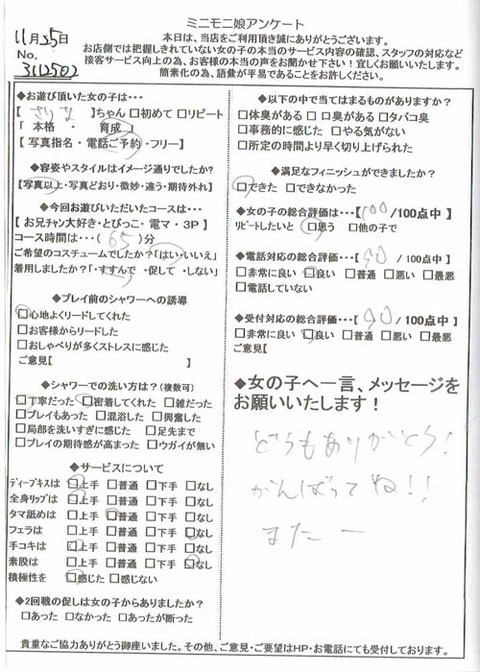 ミニモニ娘アンケート
11月25日
No.
3112502
本日は、当店をご利用頂き誠にありがとうございます。
お店側では把握しきれていない女の子の本当のサービス内容の確認、スタッフの対応など
接客サービス向上の為、お客様の本当の声をお聞かせ下さい！宜しくお願いいたします。
簡素化の為、語彙が平易であることをお許しください。
◆お遊び頂いた女の子は・・・
【 ちゃん □初めて □リピート
「 本格 ・ 育成 」
【 写真指名・電話ご予約・フリー】
◆容姿やスタイルはイメージ通りでしたか?
【写真以上・写真どおり・微妙・違う・期待外れ】
◆今回お遊びいただいたコースは・・・
【お兄チャン大好き・とびっこ・電マ・3P】
コース時間は・・・( 65 )分
ご希望のコスチュームでしたか?「はい・いいえ」
着用しましたか?「・すすんで ・促して ・しない」
◆プレイ前のシャワーへの誘導
□心地よくリードしてくれた
□お客様からリードした
□おしゃべりが多くストレスに感じた
ご意見【 】
◆シャワーでの洗い方は？(複数可)
□丁寧だった □密着してくれた □雑だった
□プレイもあった □混浴した □興奮した
□局部を洗いすぎに感じた □足先まで
□プレイの期待感が高まった □ウガイが無い
◆サービスについて
ディープキスは□上手 □普通 □下手 □なし
全身リップは□上手 □普通 □下手 □なし
タマ舐めは □上手 □普通 □下手 □なし
フェラは □上手 □普通 □下手 □なし
手コキは □上手 □普通 □下手 □なし
素股は □上手 □普通 □下手 □なし
積極性を □感じた □感じない
◆2回戦の促しは女の子からありましたか？
□あった □なかった □あったが断った
◆以下の中で当てはまるものがありますか?
□体臭がある □ 口臭がある □タバコ臭
□事務的に感じた □やる気がない
□所定の時間より早く切り上げられた
◆満足なフィニッシュができましたか?
□できた □できなかった
◆女の子の総合評価は・・・【 100 /100点中 】
リピートしたいと □思う □他の子で
◆電話対応の総合評価・・・【 90 / 100点中】
□非常に良い □良い □普通 □悪い □最悪
□電話していない
◆受付対応の総合評価・・・【 90 /100点中】
□非常に良い □良い □普通 □悪い □最悪
ご意見【
◆女の子へ一言、メッセージを
お願いいたします！
どうもありがとう!
がんばってね!!
またー
貴重なご協力ありがとう御座いました。その他、ご意見・ご要望はHP・お電話にても受付しております。